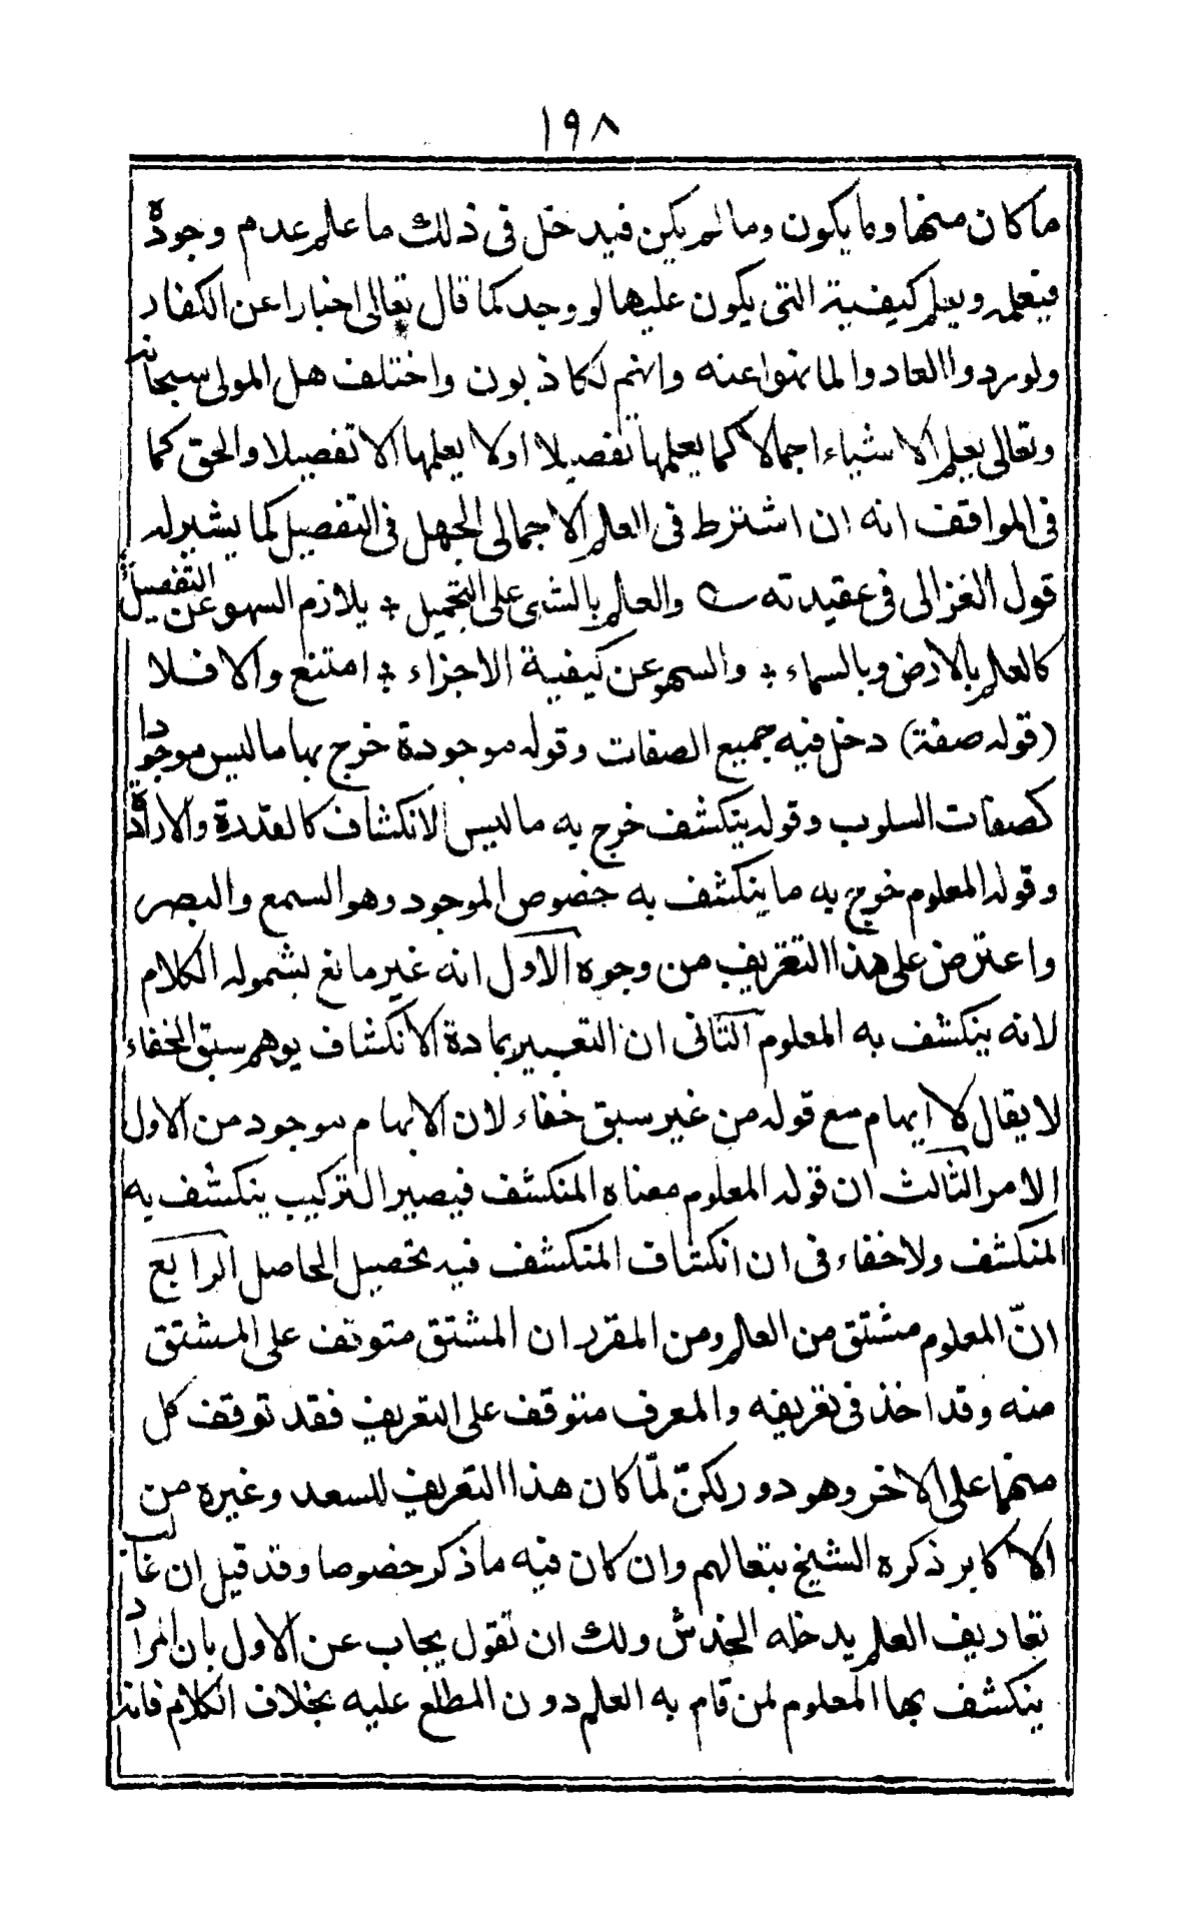 ١٩٨
ما كان منها وما يكون وما لم يكن فيدخل فى ذلك ما علم عدم وجوده
فيعلمه ويعلم كيفية التى يكون عليها لو وجد كما قال تعالى اخبارا عن الكفار
ولو ردوا لعادوا لما نهوا عنه وانهم لكاذبون واختلف هل المولى سبحانه
وتعالى يعلم الاشياء اجمالا كما يعلمها تفصيلا اولا يعلمها الا تفصيلا والحق كما
فى المواقف انه ان اشترط فى العلم الاجمالى الجهل فى التفصيل كما يشير له
قول الغزالى فى عقيدته والعلم بالشئ على التجميل * يلازم السهو عن التفصيل
كالعلم بالارض وبالسماء * والسهو عن كيفية الاجزاء * امتنع والا فلا
(قوله صفة) دخل فيه جميع الصفات وقوله موجودة خرج بها ما ليس موجودا
كصفات السلوب وقوله ينكشف خرج به ما ليس لانكشاف كالقدرة والارادة
وقوله المعلوم خرج به ما ينكشف به خصوص الموجود وهو السمع والبصر
واعترض على هذا التعريف من وجوه الاول انه غير مانع بشموله الكلام
لانه ينكشف به المعلوم الثانى ان التعبير بمادة الانكشاف يوهم سبق الخفاء
لا يقال لا ايهام مع قوله من غير سبق خفاء لان الايهام موجود من الاول
الامر الثالث ان قوله المعلوم معناه المنكشف فيصير التركيب ينكشف به
المنكشف ولا خفاء فى ان انكشاف المنكشف فيه تحصيل الحاصل الرابع
انّ المعلوم مشتق من العلم ومن المقرر ان المشتق متوقف على المشتق
منه وقد اخذ فى تعريفه والمعرف متوقف على التعريف فقد توقف كل
منهما على الاخر وهو دور لكنّ لمّا كان هذا التعريف للسعد وغيره من
الاكابر ذكره الشيخ تبعا لهم وان كان فيه ما ذكر خصوصا وقد قيل ان غالب
تعاريف العلم يدخله الخدش ولك ان تقول يجاب عن الاول بان المراد
ينكشف بها المعلوم لمن قام به العلم دون المطلع عليه بخلاف الكلام فانه